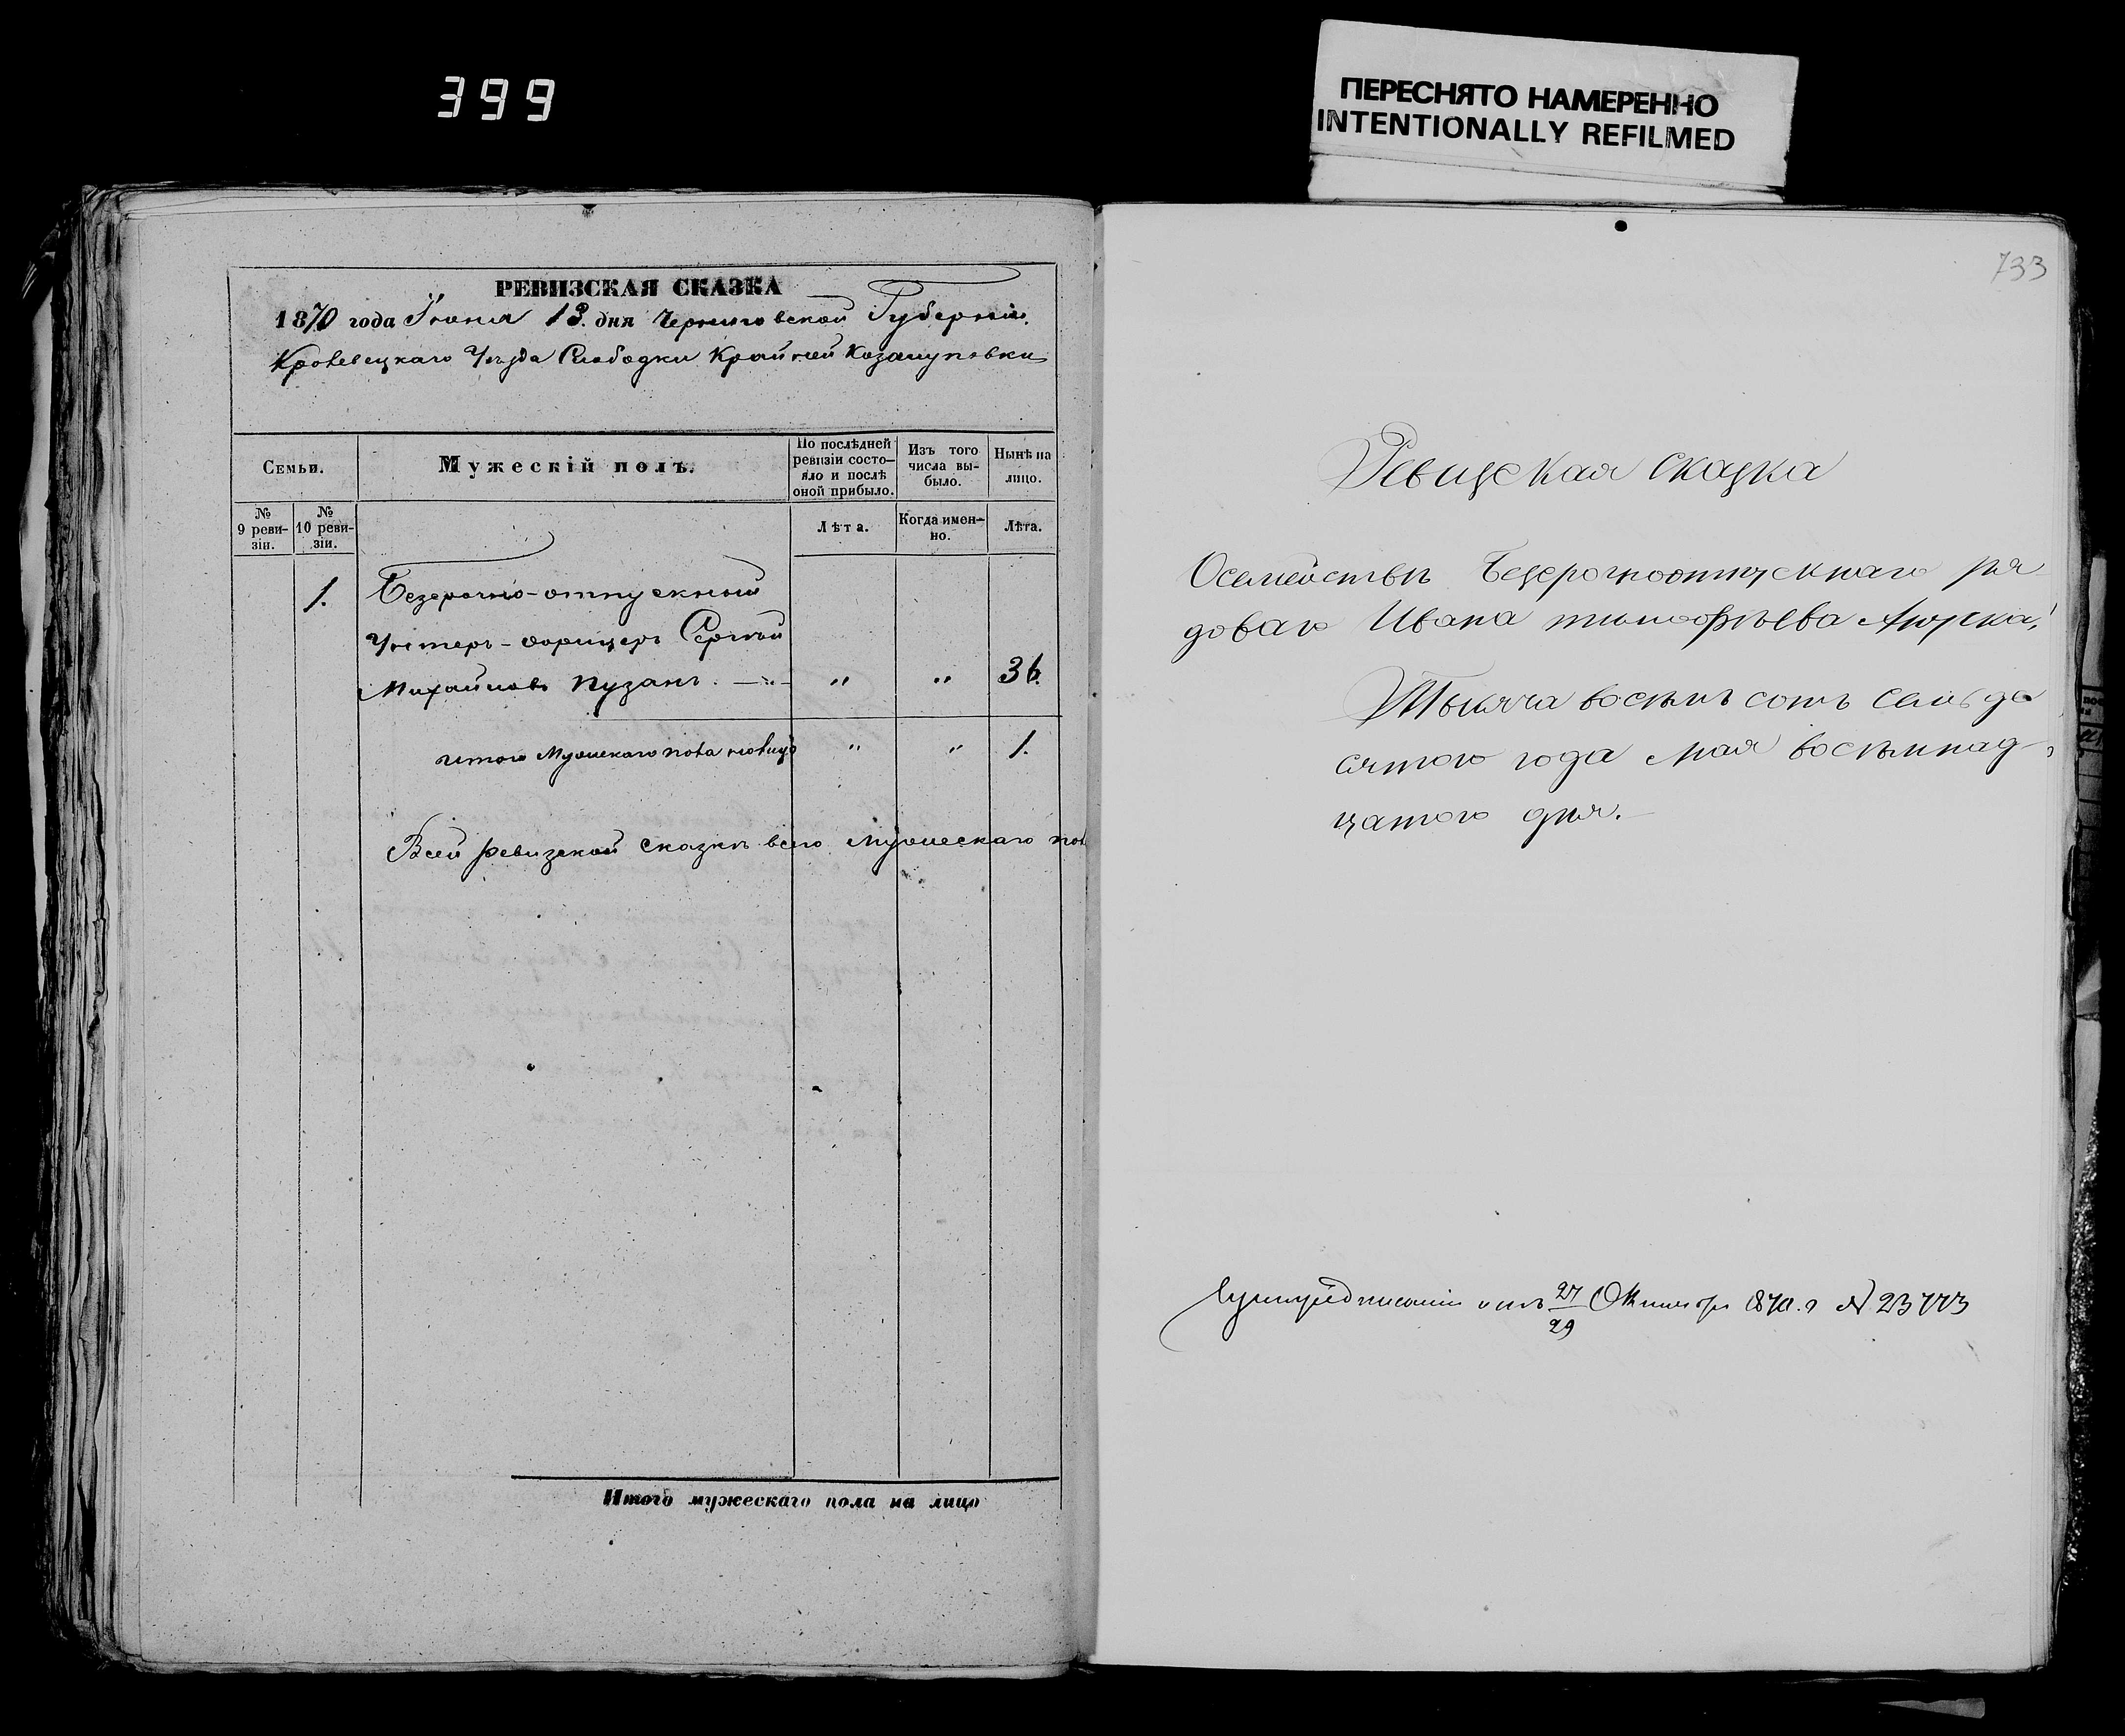 399
ПЕРЕСНЯТО НАМЕРЕННО
INTENTIONALLY REFILMED
РЕВИЗСКАЯ СКАЗКА
1870 года Іюня 13. дня Черниговской Губерніи.
Кролевецкаго Уѣзда Слободки Крайней
Семьи.
Мужескій полъ.
По послѣдней ревизіи состо-
яло и послѣ
оной прибыло.
Изъ того
числа вы-
было.
Нынѣ на
лицо.
№
9 реви-
зіи.
№
10 реви-
зіи.
Лѣта.
Когда имен-
но.
Лѣта.
1. Безсрочно-отпускный
Унтеръ-офицеръ Сергѣй
Михайловъ Пузанъ. — " " 36.
итого Мужескаго пола " " 1.
Всей ревизской сказкѣ всего Мужескаго пол
Итого мужескаго пола на лицо
733
Ревизская сказка
О семействѣ Безсрочноотпускнаго ря
доваго Ивана Тимофѣева
Тысяча восемь сотъ семьде
сятого года мая восемнад-
цатого дня.
27
29 Октября 1870. г № 23773